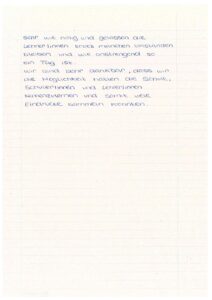 sehr wie ruhig und gelassen die
Lerner*innen trotz meinenen Umständen
bleiben und wie anstrengend so
ein Tag ist.
Wir sind sehr dankbar, dass wir
die Möglichkeit haben die Schule,
Schüler*innen und Lehrer*innen
kennenzulernen und somit viele
Eindrücke sammeln konnten.